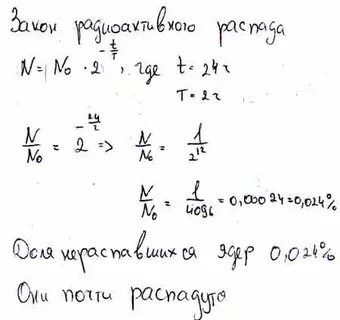 Закон радиоактивного распада
N = N₀ · 2^(-t/T), где t = 24ч
T = 2ч
N/N₀ = 2^(-24/2) => N/N₀ = 1/2¹²
N/N₀ = 1/4096 = 0,00024 = 0,024%
Доля нераспавшихся ядер 0,024%
Они почти распадутс